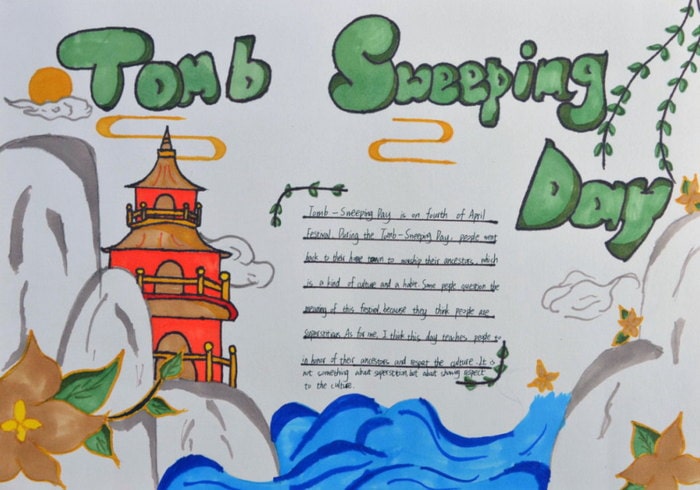 Tomb Sweeping
Day
Tomb-Sweeping Day is on fourth of April
Festival. During the Tomb-Sweeping Day, people went
back to their home town to worship their ancestors, which
is a kind of culture and a habit. Some people question the
meaning of this festival because they think people are
superstitious. As for me, I think this day teaches people to
in honor of their ancestors and respect the culture. It is
not something about superstition but about showing respect
to the culture.